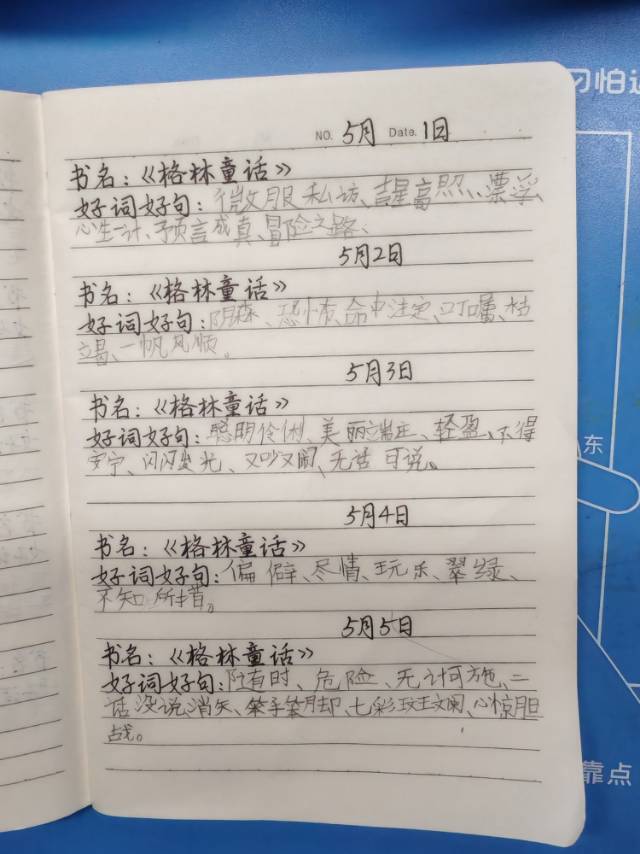 习怕远
NO. 5月 Date. 1日
书名:《格林童话》
好词好句:微服私访、吉星高照、漂浮、
心生一计、预言成真、冒险之路、
5月2日
书名:《格林童话》
好词好句:阴森、恐怖、命中注定、叮嘱、
一帆风顺。
5月3日
书名:《格林童话》
好词好句:聪明伶俐、美丽端庄、轻盈、不得
安宁、闪闪发光、又吵又闹、无话可说。
东
5月4日
书名:《格林童话》
好词好句:偏僻、尽情、玩乐、翠绿、
不知所措。
5月5日
书名:《格林童话》
好词好句:随时、危险、无计可施、二
话没说、消失、笨手笨脚、七彩斑斓、心惊胆
战。
靠点